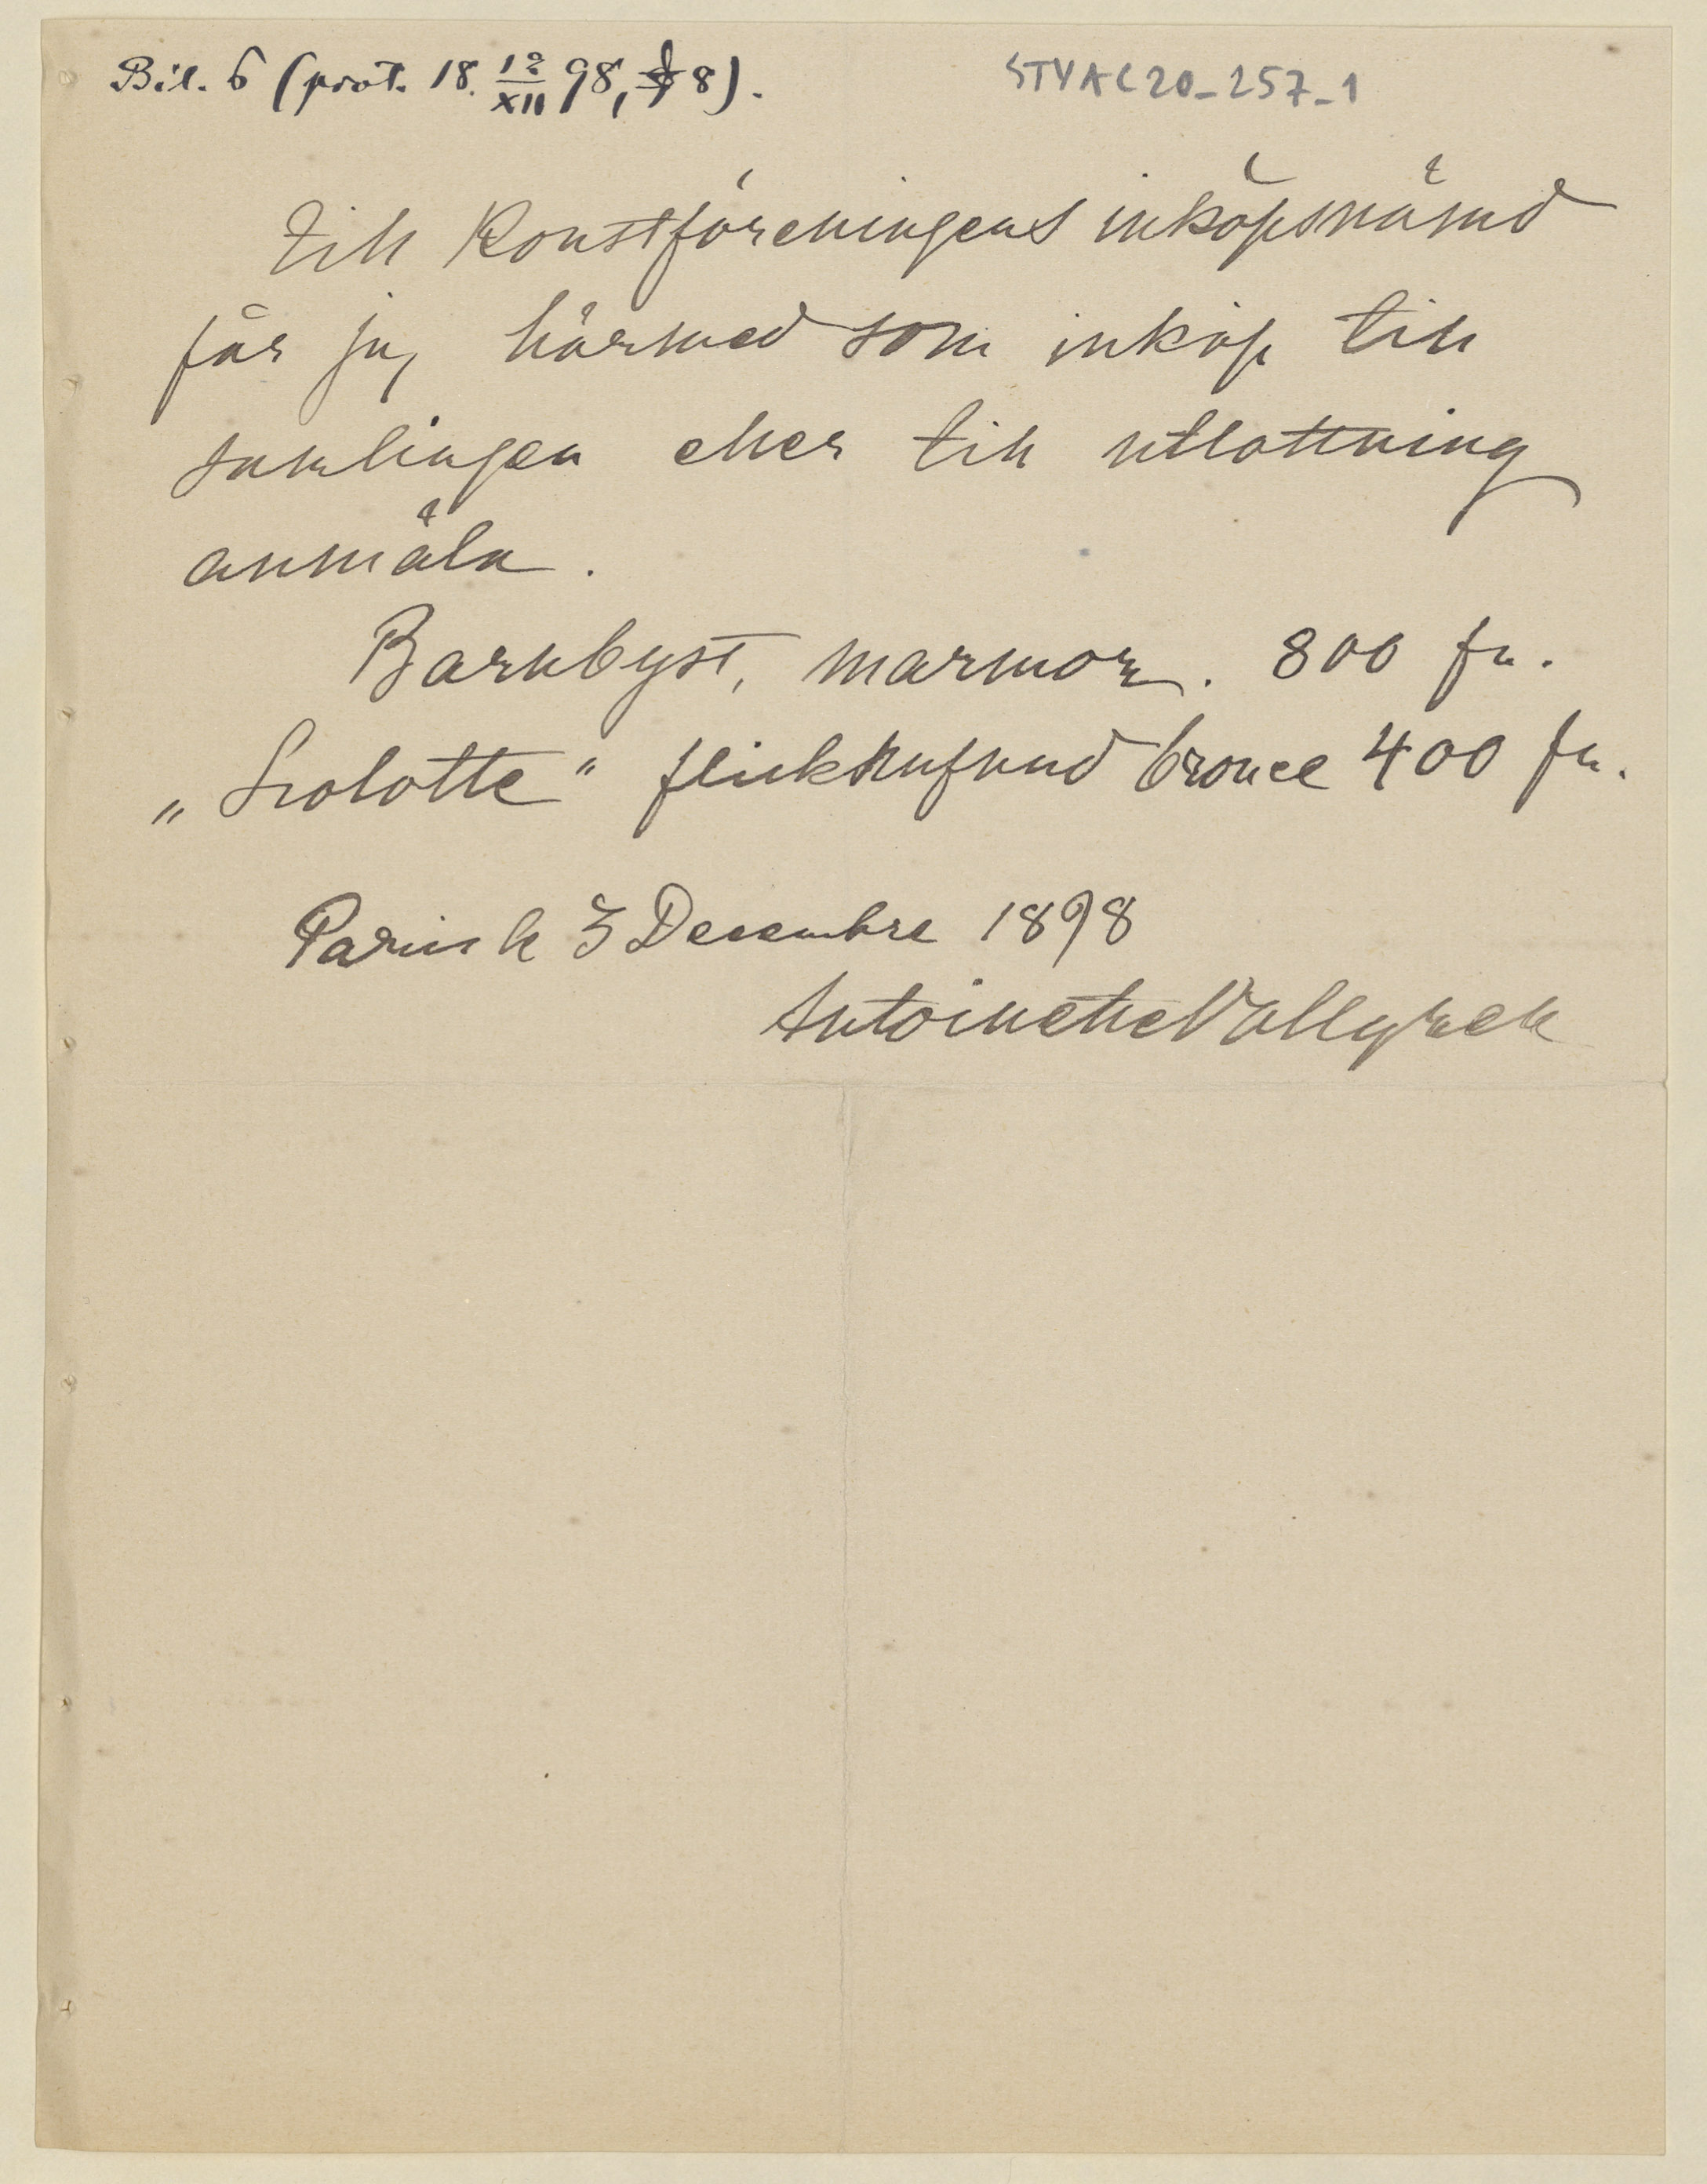 Bil. 6 (prot. 18 12/XII 98, § 8).
STYAC20_257_1
Till Konstföreningens inköpsnämnd
får jag härmed som inköp till
samlingen eller till utlottning
anmäla.
Barnbyst, marmor. 800 fr.
bronce 400 fr.
Paris le 3 Decembre 1898
Antoinette Vallgren